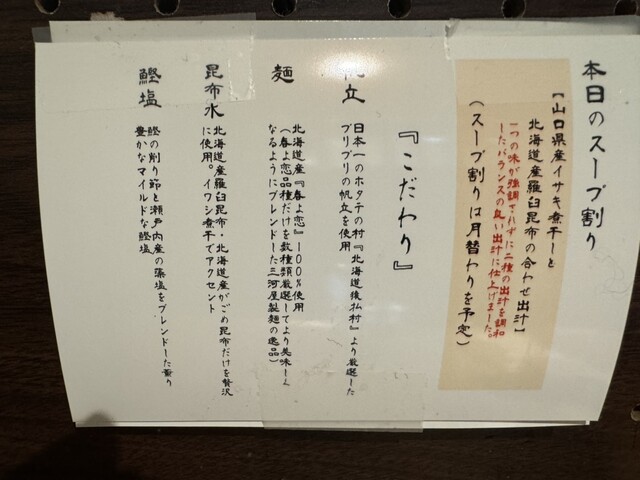 本日のスープ割り
【山口県産イサキ煮干しと
北海道産羅臼昆布の合わせ出汁】
一つの味が強調されずに二種の出汁を調和
したバランスの良い出汁に仕上げました。
(スープ割りは月替わりを予定)
『こだわり』
帆立
日本一のホタテの村『北海道猿払村』より厳選した
プリプリの帆立を使用
麺
北海道産『春よ恋』100%使用
(春よ恋品種だけを数種類厳選してより美味しく
なるようにブレンドした三河屋製麺の逸品)
昆布水
北海道産羅臼昆布・北海道産がごめ昆布だけを贅沢
に使用。イワシ煮干でアクセント
鰹塩
鰹の削り節と瀬戸内産の藻塩をブレンドした香り
豊かなマイルドな鰹塩